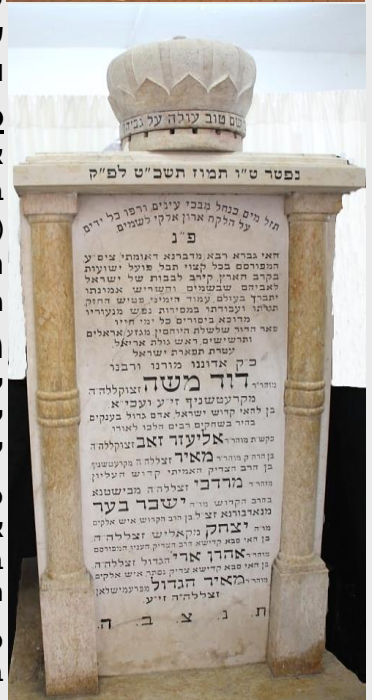 שם טוב עולה על גביהן
נפטר ט"ו תמוז תשכ"ט לפ"ק
תזל מים כנחל מבכי עינים ורפו כל ידים
על הלקח ארון אלקי לשמים
פ"נ
האי גברא רבא מדברנא דאומתי' ציס"ע
המפורסם בכל קצוי תבל, פועל ישועות
בקרב הארץ, קירב לבבות של ישראל
לאביהם שבשמים והשריש אמונתו
יתברך בעולם, עמוד הימיני פטיש החזק
תורתו ועבודתו במסירות נפש מנעוריו
מדוכא ביסורים כל ימי חייו
פאר הדור שלשלת היוחסין, מגזע אראלים
ותרשישים, ראש גולת אריאל
עטרת תפארת ישראל
כ"ק אדוננו מורנו ורבנו
מוהר"ר דוד משה זצוקללה"ה
מקרעטשניף זי"ע ועכי"א
בן להאי קדוש ישראל, אדם גדול בענקים
בהיר בשחקים רבים הלכו לאורו
בקש"ת מוהר"ר אליעזר זאב זצוקללה"ה
בן הרה"ק מוהר"ר מאיר זצללה"ה מקרעטשניף
בן הרב הצדיק האמיתי קדוש העליון
מוהר"ר מרדכי זצללה"ה מבישטנא
בהרב הקדוש מו"ה ישכר בער
מנאדבורנא זצ"ל בן הרב הקדוש איש אלקים
מו"ה יצחק מקאליש זצללה"ה
בן האי סבא קדישא הרב הצדיק הענין המפורסם
מוהר"ר אהרן ארי' הגדול זצללה"ה
בן האי סבא קדישא צדיק נסתר איש אלקים
מוהר"ר מאיר הגדול מפרעמישלאן
זצללה"ה זי"ע
ת. נ. צ. ב. ה.